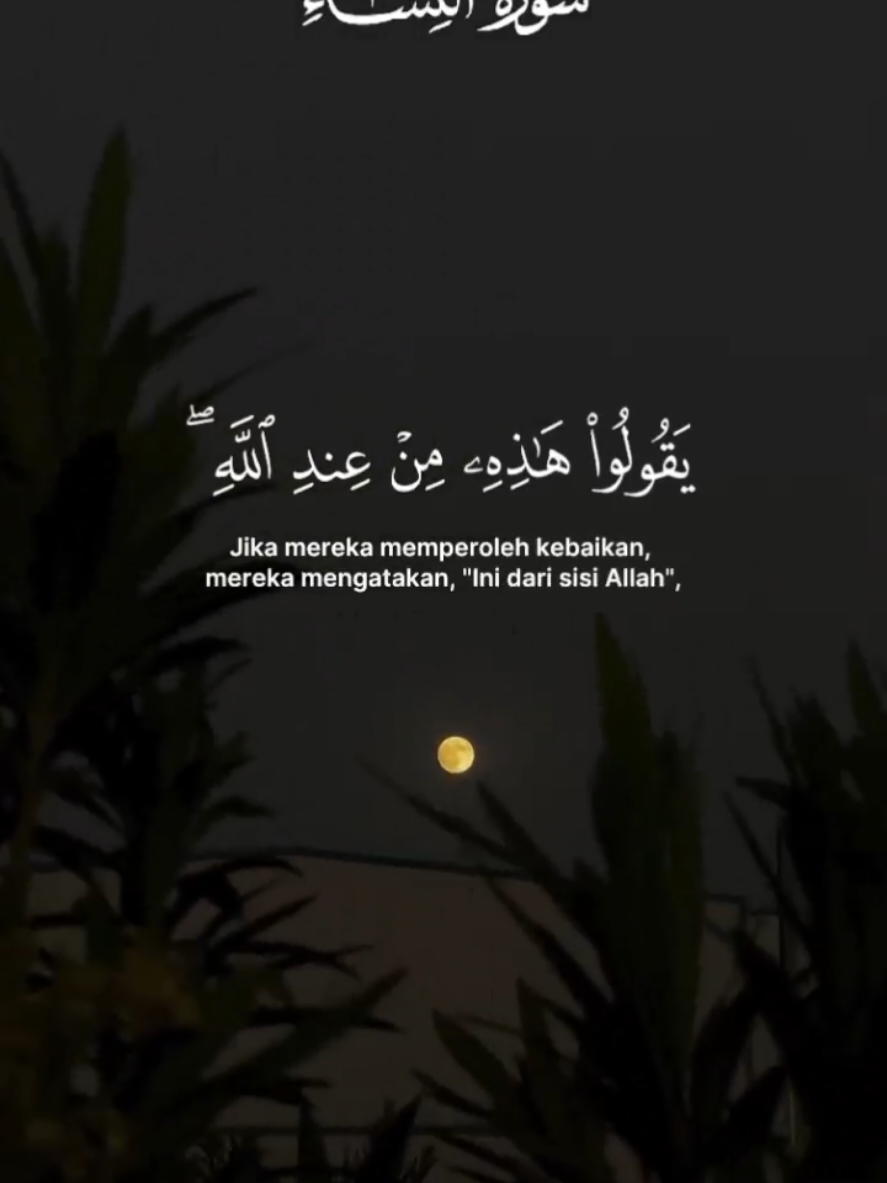 سورة النساء
يَقُولُوا۟ هَـٰذِهِۦ مِنْ عِندِ ٱللَّهِ ۖ
Jika mereka memperoleh kebaikan,
mereka mengatakan, "Ini dari sisi Allah",